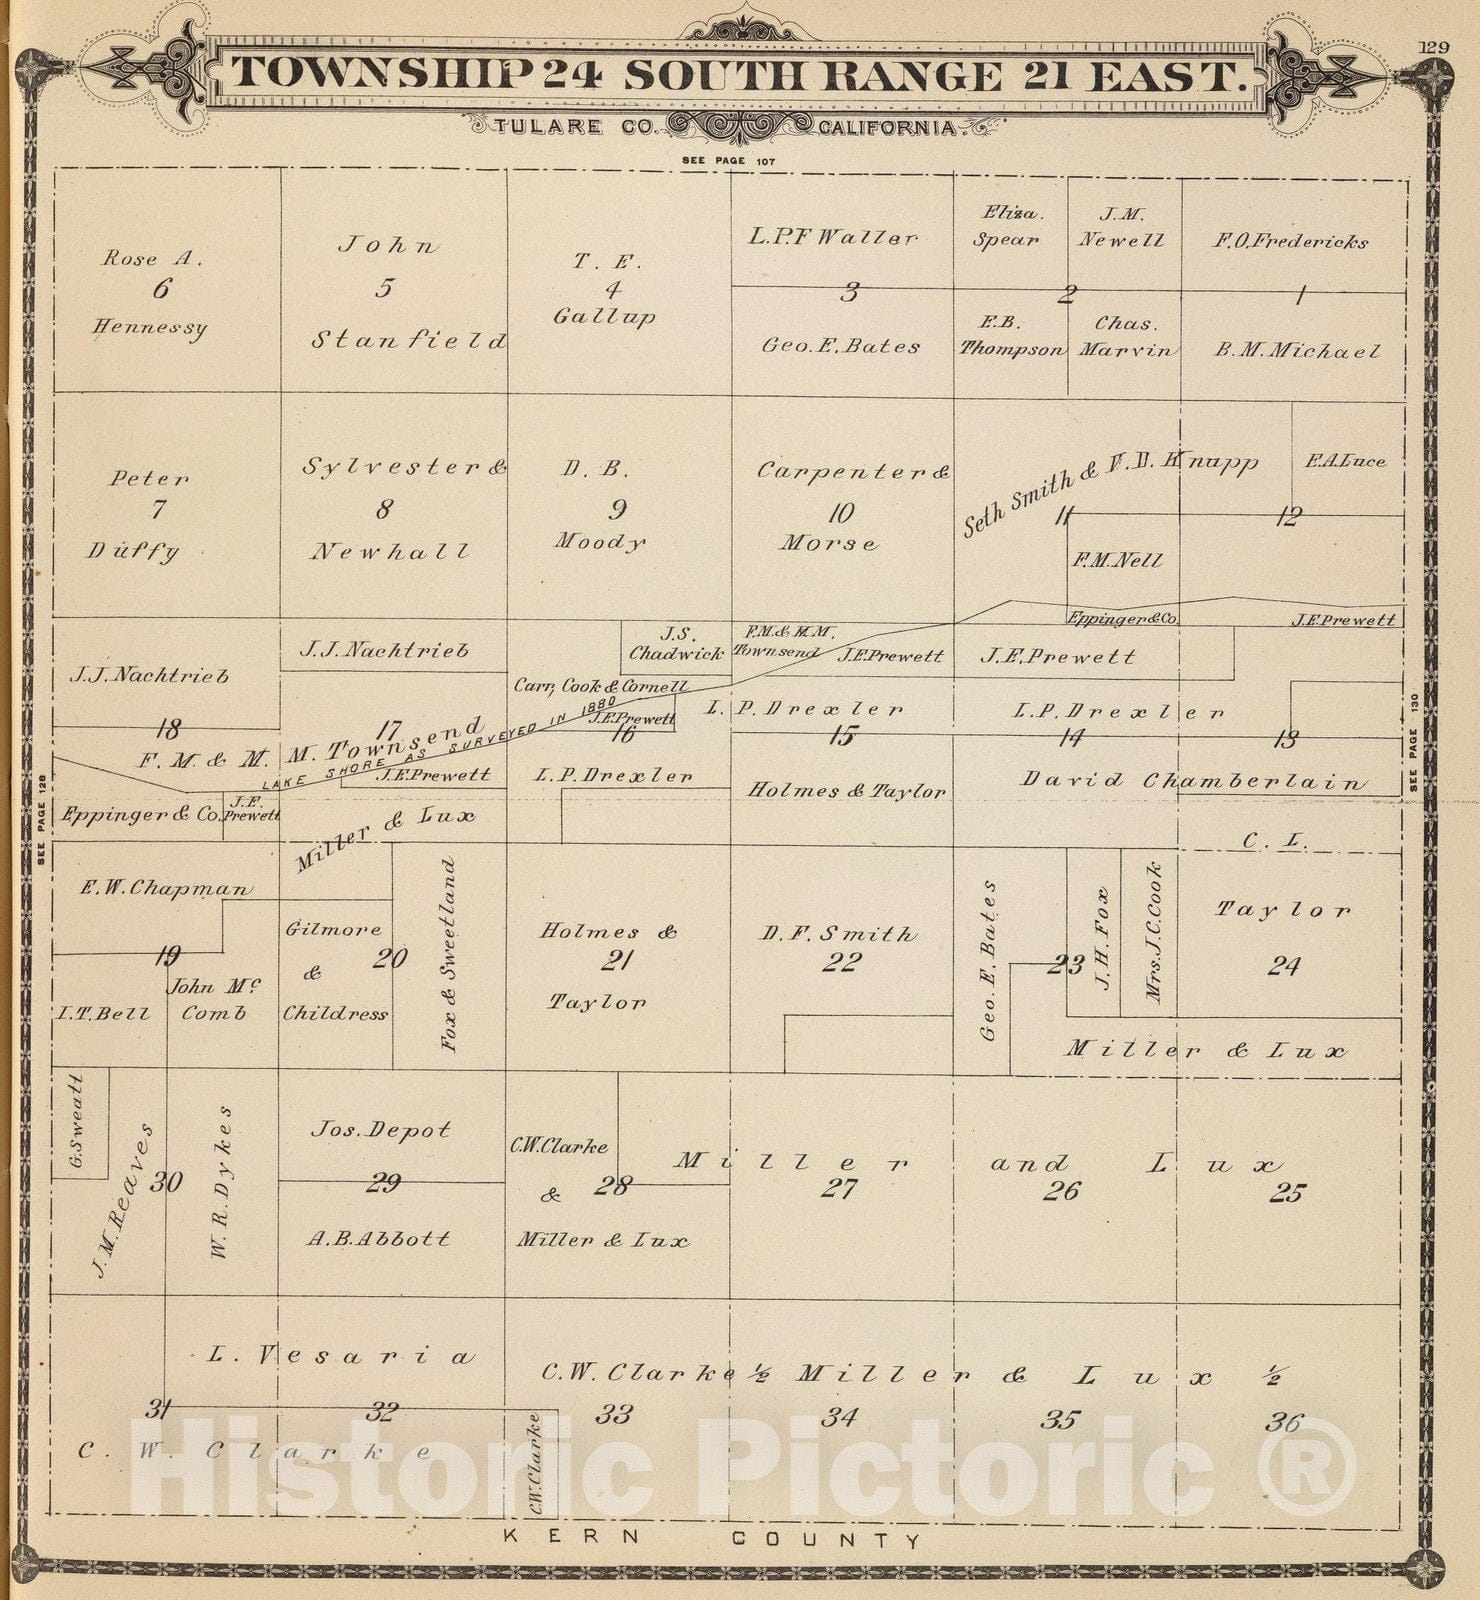 129
TOWNSHIP 24 SOUTH RANGE 21 EAST.
TULARE CO. CALIFORNIA.
SEE PAGE 107
Rose A.
6
Hennessy
John
5
Stanfield
T. E.
4
Gallup
L.P.F Waller
3
Geo. E. Bates
Eliza.
Spear
J.M.
Newell
2
E.B.
Thompson
Chas.
Marvin
F.O. Fredericks
1
B.M. Michael
Peter
7
Duffy
Sylvester &
8
Newhall
D. B.
9
Moody
Carpenter &
10
Morse
Seth Smith & F. D. Knupp
11
F.M. Nell
E.A. Luce
12
Eppinger & Co.
J.E. Prewett
J.J. Nachtrieb
18
J.J. Nachtrieb
17
J.S.
Chadwick
F.M. & M.M.
Townsend
J.E. Prewett
J.E. Prewett
Carr, Cook & Cornell
J.E. Prewett
16
L. P. Drexler
15
L.P. Drexler
14
13
F. M. & M. M. Townsend
LAKE SHORE AS SURVEYED IN 1880
J.E. Prewett
L.P. Drexler
Holmes & Taylor
David Chamberlain
SEE PAGE 128
SEE PAGE 130
Eppinger & Co.
J.E.
Prewett
Miller & Lux
E.W. Chapman
19
I.T. Bell
John Mc
Comb
Gilmore
&
Childress
20
Fox & Sweetland
Holmes &
21
Taylor
D. F. Smith
22
Geo. E. Bates
23
J.H. Fox
Mrs. J.C. Cook
C. L.
Taylor
24
Miller & Lux
G. Sweatt
J.M. Reaves
30
W. R. Dykes
Jos. Depot
29
A.B. Abbott
C.W. Clarke
&
28
Miller & Lux
Miller and Lux
27
26
25
L. Vesaria
31
32
C. W. Clarke
C.W. Clarke
C.W. Clarke ½ Miller & Lux ½
33
34
35
36
Historic Pictoric ®
KERN COUNTY